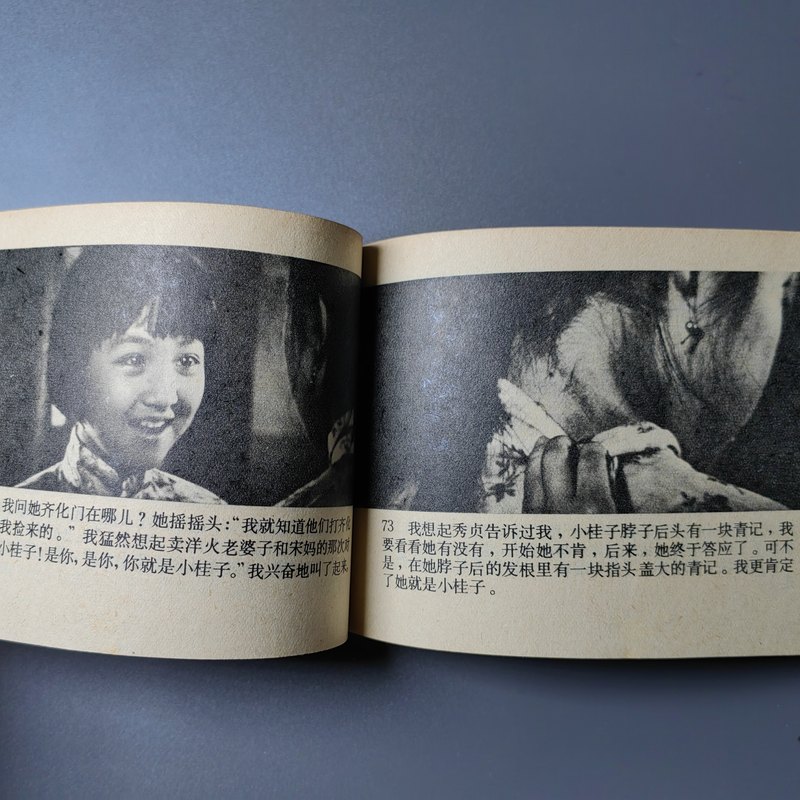 我问她齐化门在哪儿？她摇摇头：“我就知道他们打齐化
我捡来的。” 我猛然想起卖洋火老婆子和宋妈的那次对
小桂子！是你，是你，你就是小桂子。”我兴奋地叫了起来。
73 我想起秀贞告诉过我，小桂子脖子后头有一块青记，我
要看看她有没有，开始她不肯，后来，她终于答应了。可不
是，在她脖子后的发根里有一块指头盖大的青记。我更肯定
了她就是小桂子。